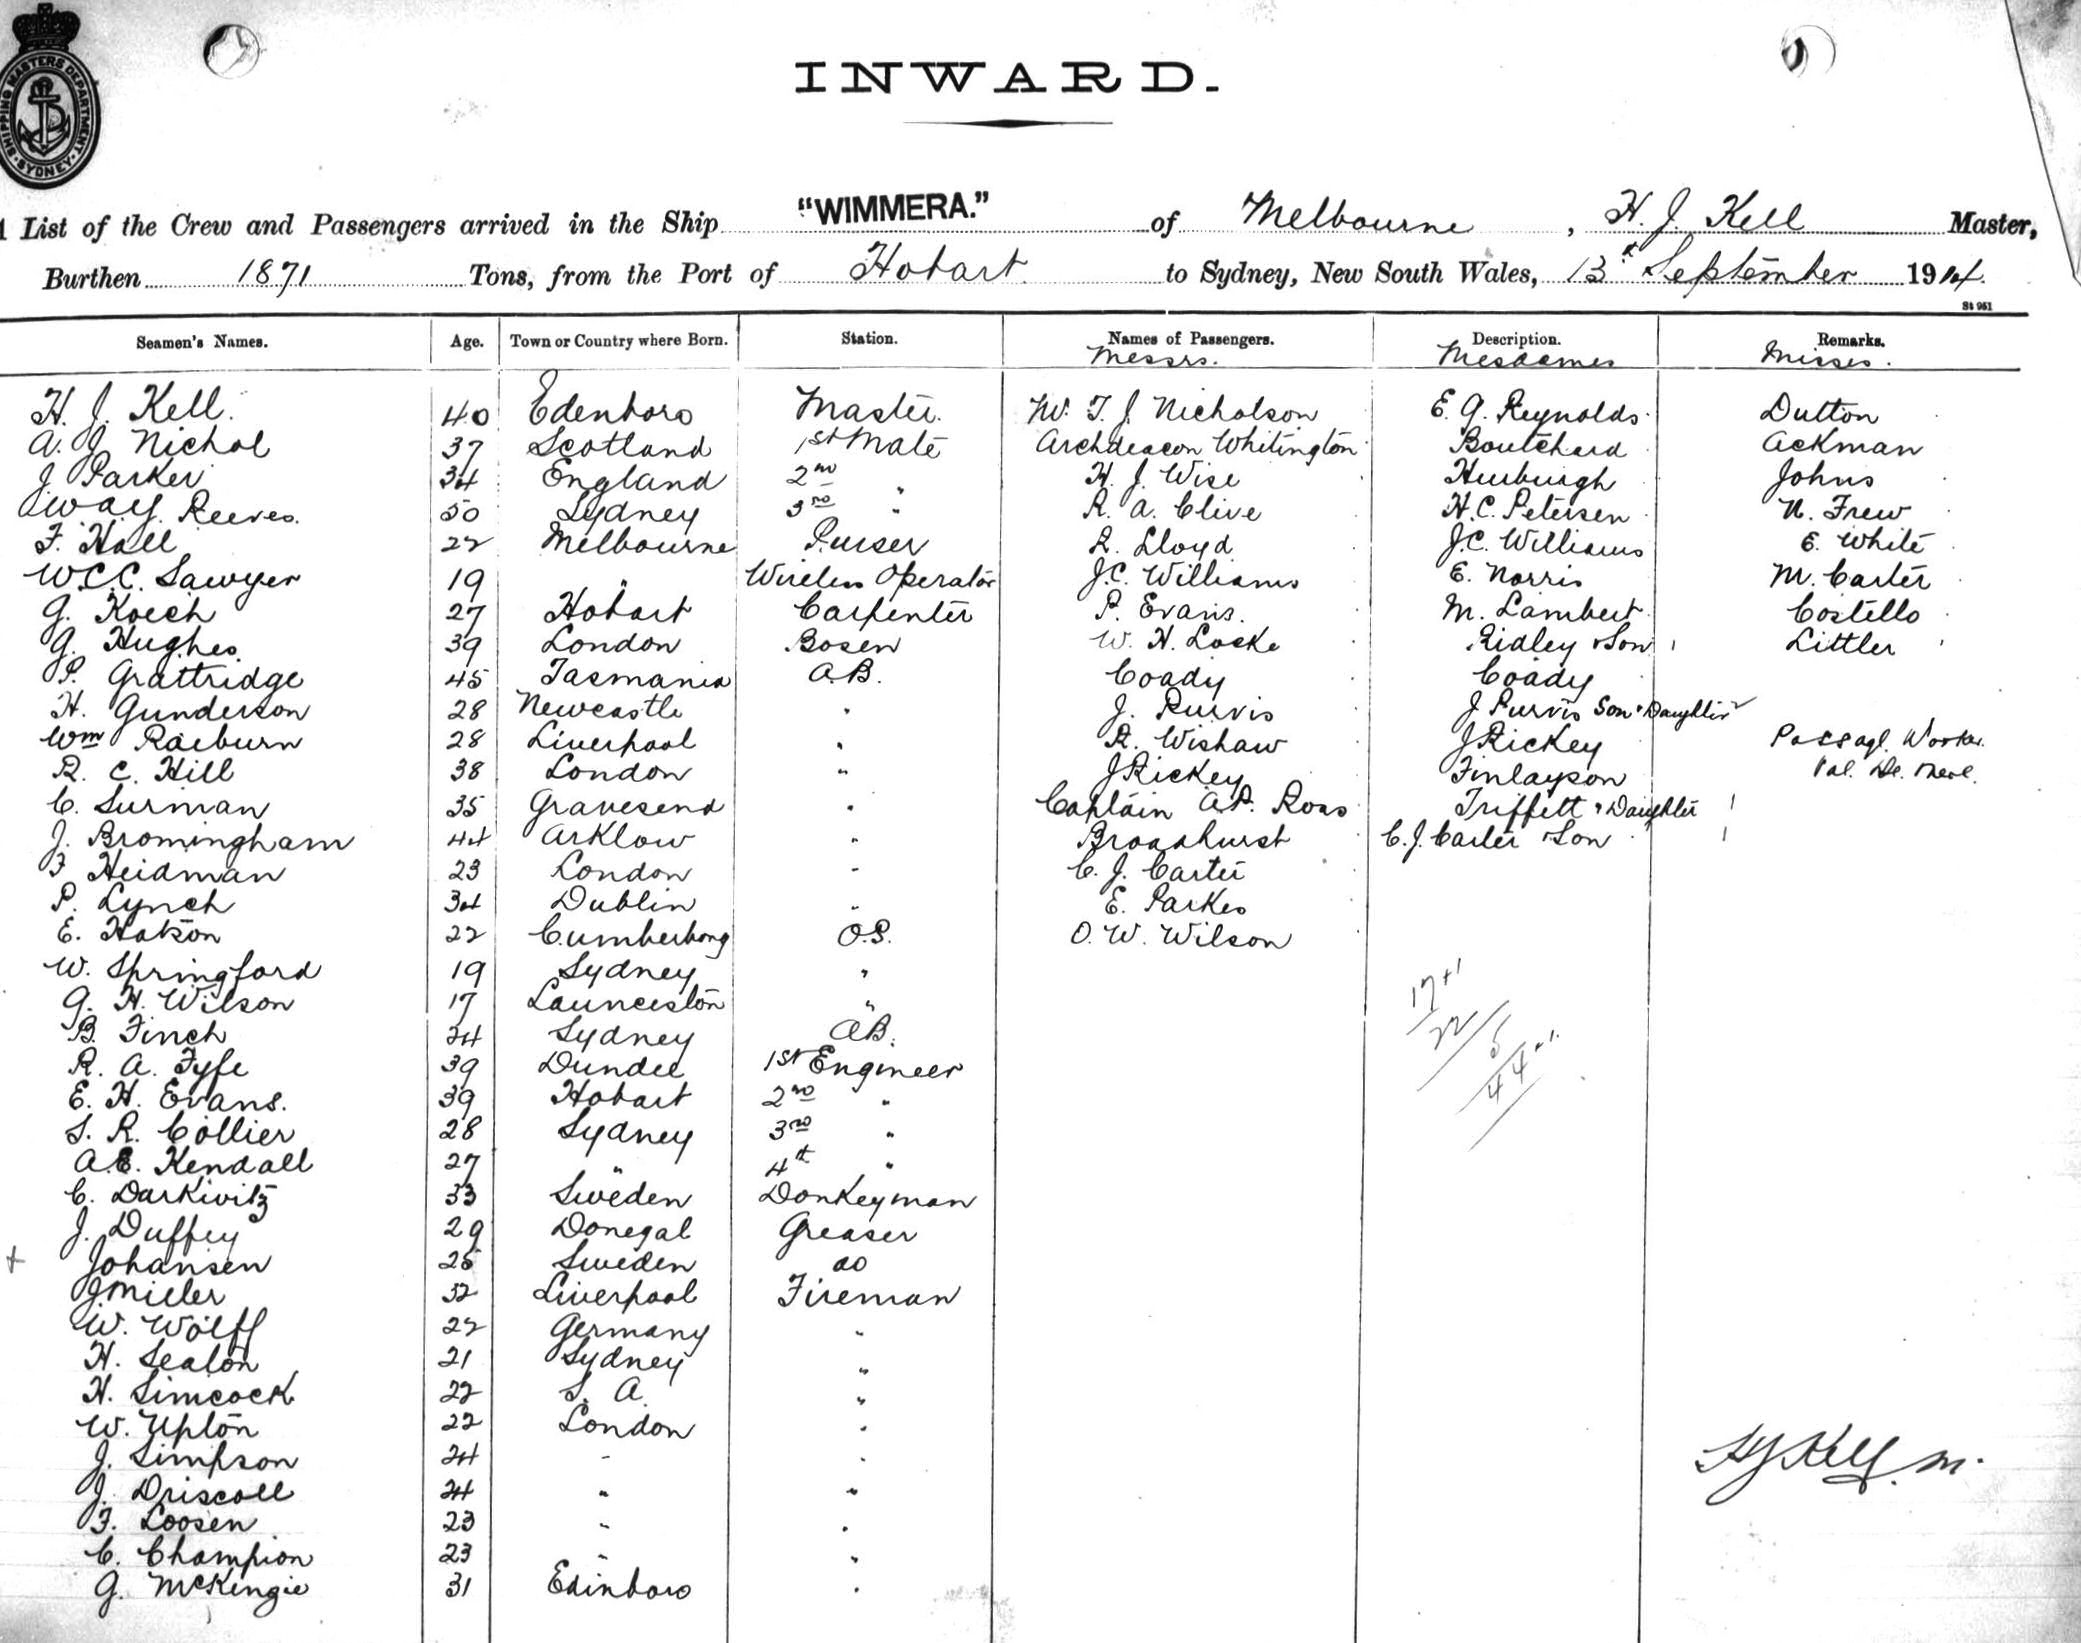 SHIPPING MASTERS DEPARTMENT · SYDNEY ·
INWARD.
List of the Crew and Passengers arrived in the Ship "WIMMERA." of Melbourne, H. J. Kell Master,
Burthen 1871 Tons, from the Port of Hobart to Sydney, New South Wales, 13th September 1914.
St 951
Seamen's Names. Age. Town or Country where Born. Station. Names of Passengers. Description. Remarks.
Messrs. Mesdames Misses.
H. J. Kell. 40 Edenboro Master. W. T. J. Nicholson E. G. Reynolds Dutton
A. J. Nichol 37 Scotland 1st Mate Archdeacon Whitington Boutchard Ackman
J. Parker 34 England 2nd " H. J. Wise Hurburgh Johns
Way Reeves. 50 Sydney 3rd " R. A. Clive H. C. Petersen N. Frew
F. Hall 22 Melbourne Purser R. Lloyd J. C. Williams E. White
W.C.C. Sawyer 19 " Wireless Operator J. C. Williams E. Norris M. Carter
G. Koech 27 Hobart Carpenter P. Evans. M. Lambert Costello
G. Hughes 39 London Bosen W. H. Locke Ridley & Son 1 Littler
P. Grattridge 45 Tasmania A.B. Coady Coady
H. Gunderson 28 Newcastle " J. Purvis J. Purvis Son & Daughter 2
Wm Raeburn 28 Liverpool " R. Wishaw J Rickey
R. C. Hill 38 London " J Rickey Finlayson
C. Surman 35 Gravesend " Captain A. P. Ross Triffett & Daughter 1
J. Bromingham 44 Arklow " Broadhurst C. J. Carter & Son 1
F Heidman 23 London " C. J. Carter
P. Lynch 34 Dublin " E. Parkes
E. Hatson 22 O.S. O. W. Wilson
W. Springford 19 Sydney "
G. H. Wilson 17 Launceston "
B. Finch 24 Sydney A.B.
R. A. Fyfe 39 Dundee 1st Engineer
E. H. Evans. 39 Hobart 2nd "
S. R. Collier 28 Sydney 3rd "
A. E. Kendall 27 " 4th "
C. Darkivitz 33 Sweden Donkeyman
J. Duffey 29 Donegal Greaser
+ Johansen 25 Sweden do
J Miller 32 Liverpool Fireman
W. Wolff 22 Germany "
H. Sealon 21 Sydney "
H. Simcock 22 S. A. "
W. Upton 22 London "
J. Simpson 24 " "
J. Driscoll 24 " "
F. Loosen 23 " "
C. Champion 23 " "
G. McKingie 31 Edinboro "
17+1
22
5
44+1
HJ Kell. M.